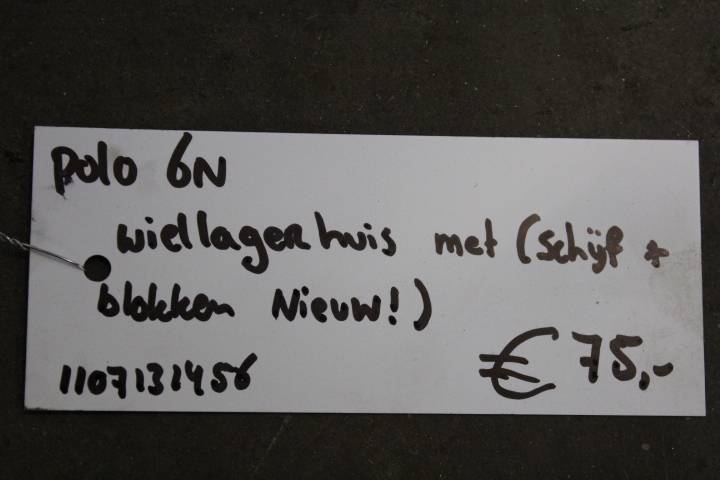 Polo 6N
wiellagerhuis met (schijf +
blokken Nieuw!)
1107131456
€ 75,-